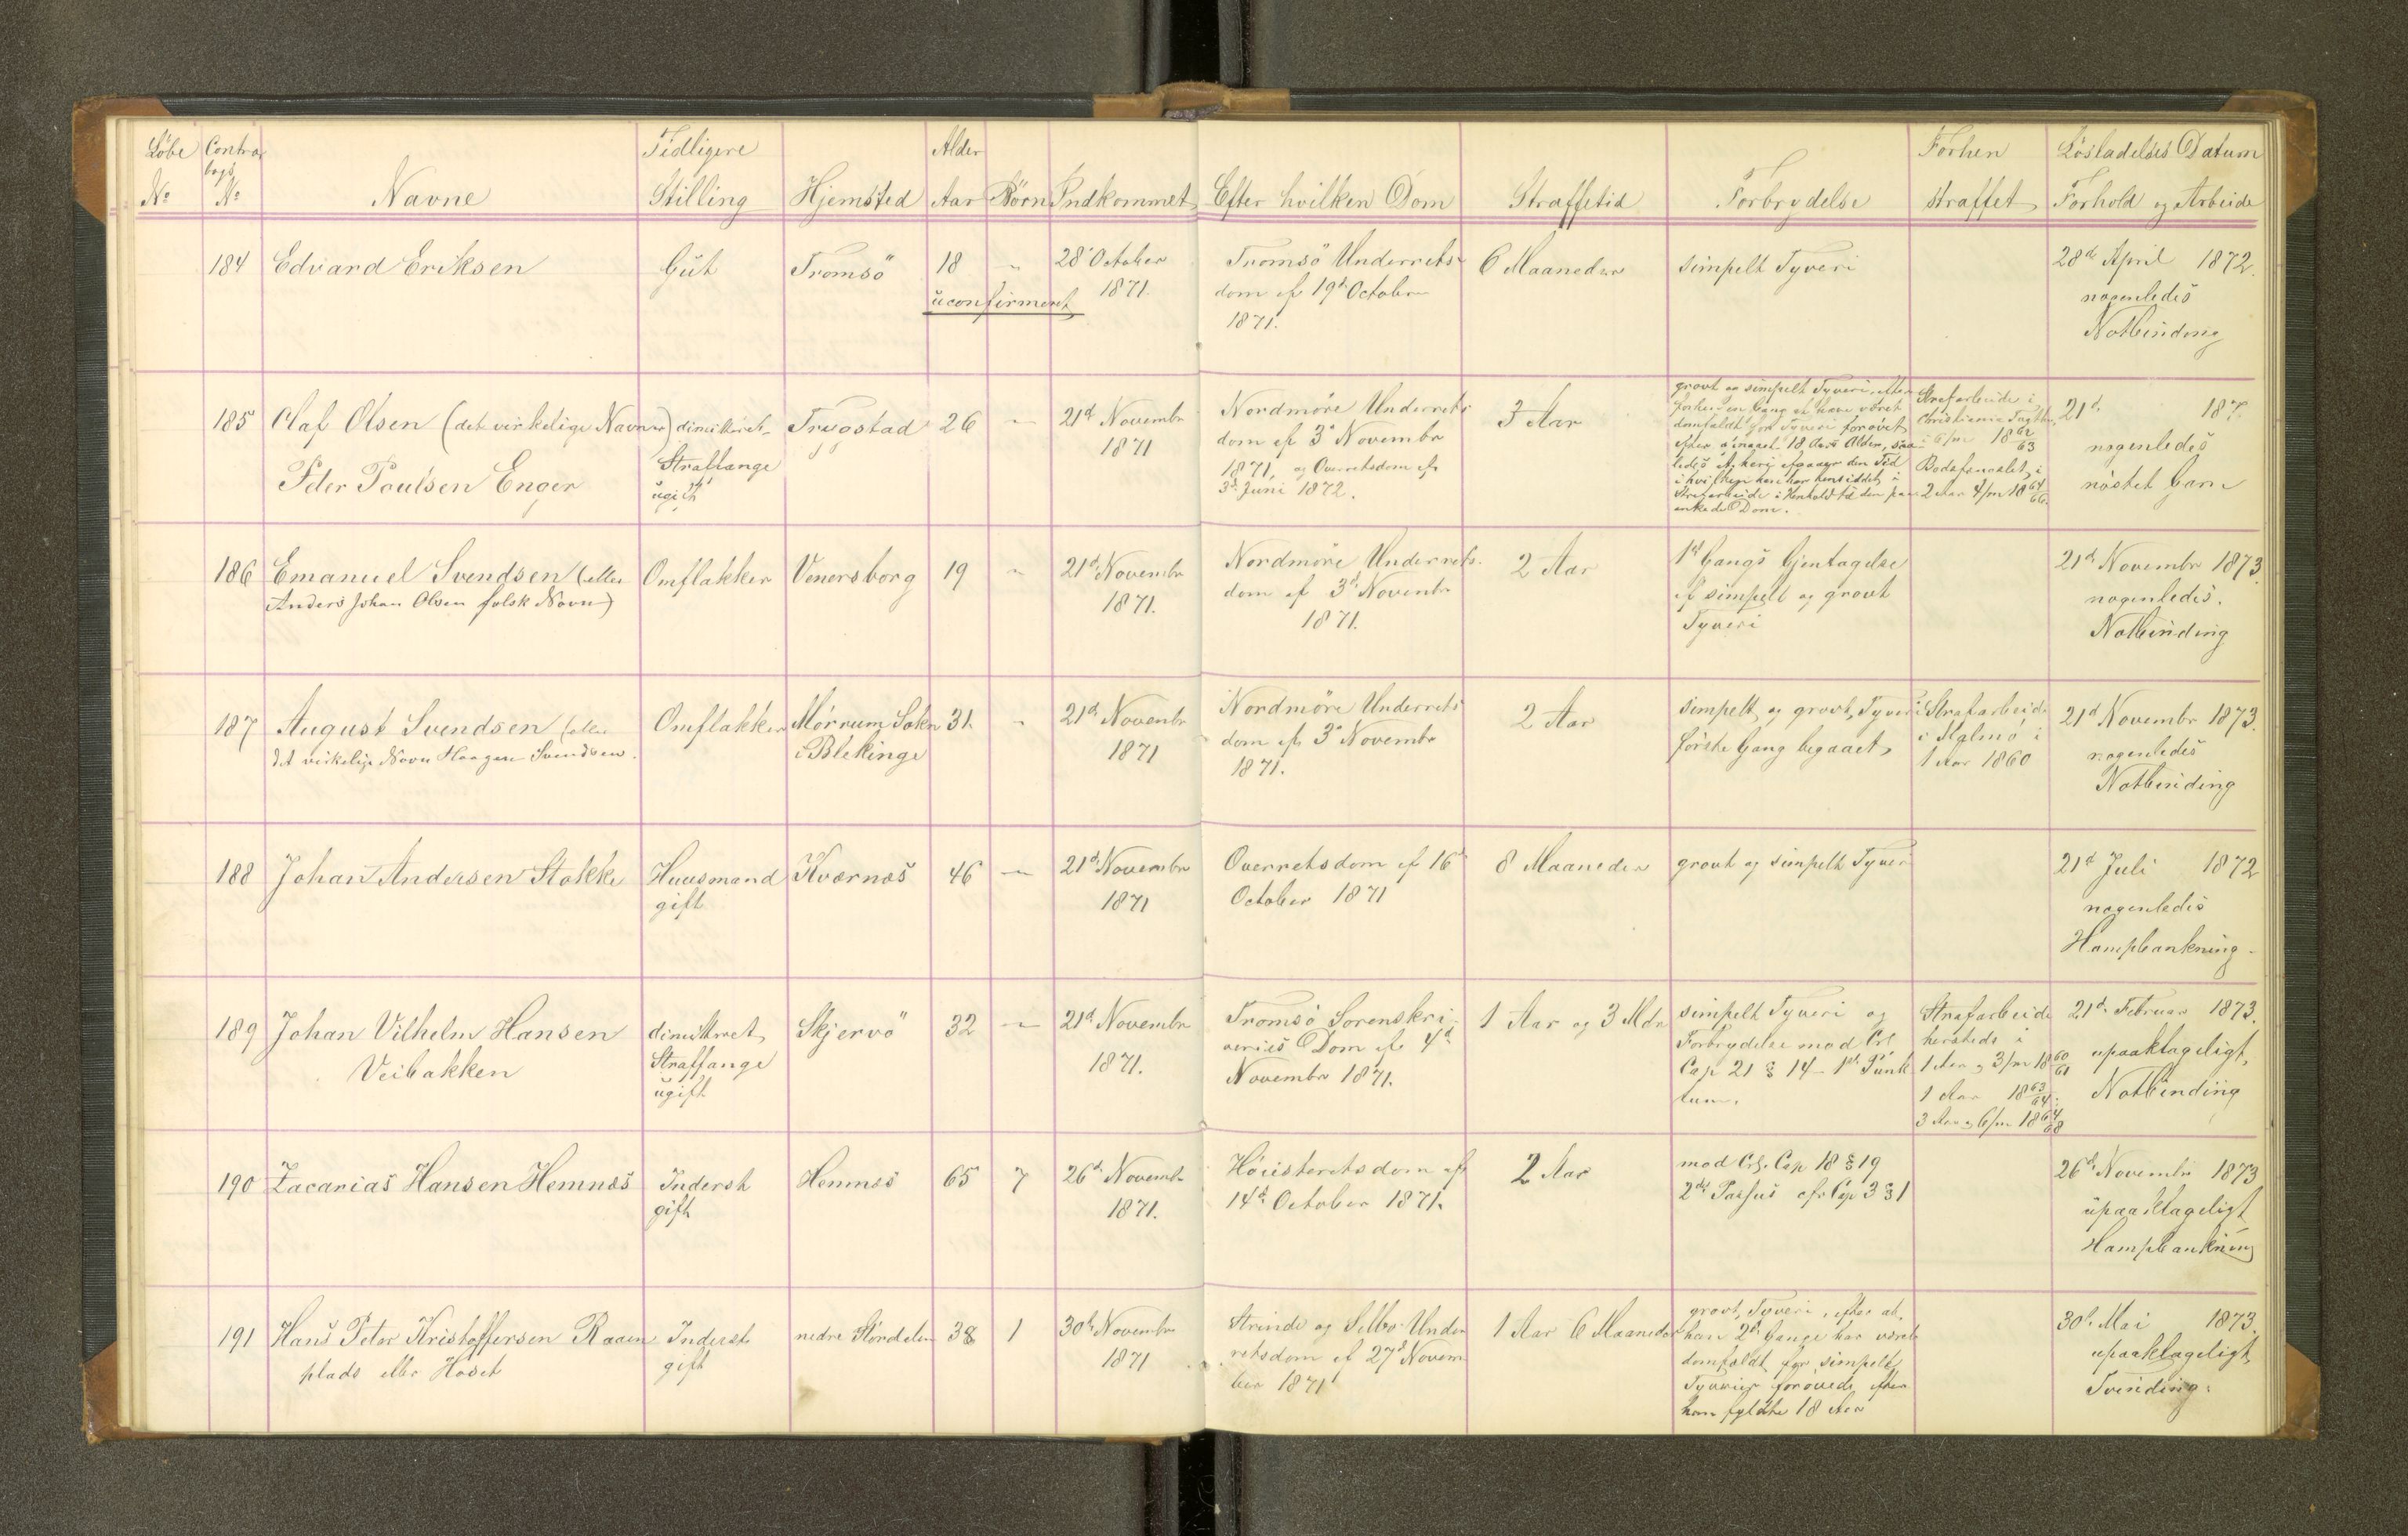 Löbe Contra Tidligere Alder Forhen Lösladelses Datum
bogs
No No Navne Stilling Hjemsted Aar Börn Indkommet Efter hvilken Dom Straffetid Forbrydelse straffet Forhold og Arbeide
184 Edvard Eriksen Gut Tromsö 18 " 28 October Tromsö Underrets 6 Maaneder simpelt Tyveri 28d April 1872.
uconfirmeret 1871. dom af 19d October nogenledes
1871. Notbinding
185 Olaf Olsen (det virkelige Navn er) dimitteret Trygstad 26 " 21d Novembr Nordmöre Underrets 3 Aar grovt og simpelt Tyveri, efter Strafarbeide i 21d 187
Peter Paulsen Enger Straffange 1871 dom af 3d Novembr forhen en Gang at have været Christiania Tugthus nogenledes
ugift 1871, og Overretsdom af domfældt for Tyveri forövet i 6/m 1862/63 nöstet Garn
3d Juni 1872. efter opnaaet 18 Aars Alder, saa Bodsfængslet i
ledes at heri afgaaer den Tid 2 Aar 4/m 1864/66
i hvilken han har hensiddet i
Strafarbeide i Henhold til den paa
ankede Dom.
186 Emanuel Svendsen (eller Omflakker Venersborg 19 " 21d Novembr Nordmöre Underrets 2 Aar 1st Gangs Gjentagelse 21d Novembr 1873
Anders Johan Olsen falsk Navn) 1871. dom af 3d Novembr af simpelt og grovt nogenledes.
1871. Tyveri Notbinding
187 August Svendsen (eller Omflakker Mörrum Sokn 31 " 21d Novembr Nordmöre Underrets 2 Aar simpelt og grovt Tyveri Strafarbeide 21d Novembr 1873.
det virkelige Navn Haagen Svendsen. i Blekinge 1871 dom af 3d Novembr förste Gang begaaet i Malmö i nogenledes
1871. 1 Aar 1860 Notbinding
188 Johan Andersen Stokke Huusmand Kværnæs 46 " 21d Novembr Overretsdom af 16d 8 Maaneder grovt og simpelt Tyveri 21d Juli 1872
gift 1871 October 1871 nogenledes
Hampbankning
189 Johan Vilhelm Hansen dimitteret Skjervö 32 " 21d Novembr Tromsö Sorenskri 1 Aar og 3 Mdr simpelt Tyveri og Strafarbeide 21d Februar 1873.
Veibakken Straffange 1871. veries Dom af 4d Forbrydelse mod Crl. hersteds i upaaklageligt
ugift Novembr 1871. Cap 21 § 14 1st Punk 1 Aar og 3/m 1860/61 Notbinding
tum. 1 Aar 1863/64
3 Aar og 6/m 1864/68
190 Zacarias Hansen Hemnæs Inderst Hemnæs 65 7 26d Novembr Höiesteretsdom af 2 Aar mod Crl. Cap 18 § 19 26d Novembr 1873
gift 1871. 14d October 1871. 2det Passus cfr Cap 3 § 1 upaaklageligt
Hampbankning
191 Hans Peter Kristoffersen Raaen Inderst nedre Stördalen 38 1 30d Novembr Strinde og Selbo Under 1 Aar 6 Maaneder grovt Tyveri, efter at 30d Mai 1873.
plads eller Hoset gift 1871 retsdom af 27d Novem han 2de Gange har været upaaklageligt
ber 1871 domfældt for simpelt Tvinding.
Tyverier forövede efter
han fyldte 18 Aar